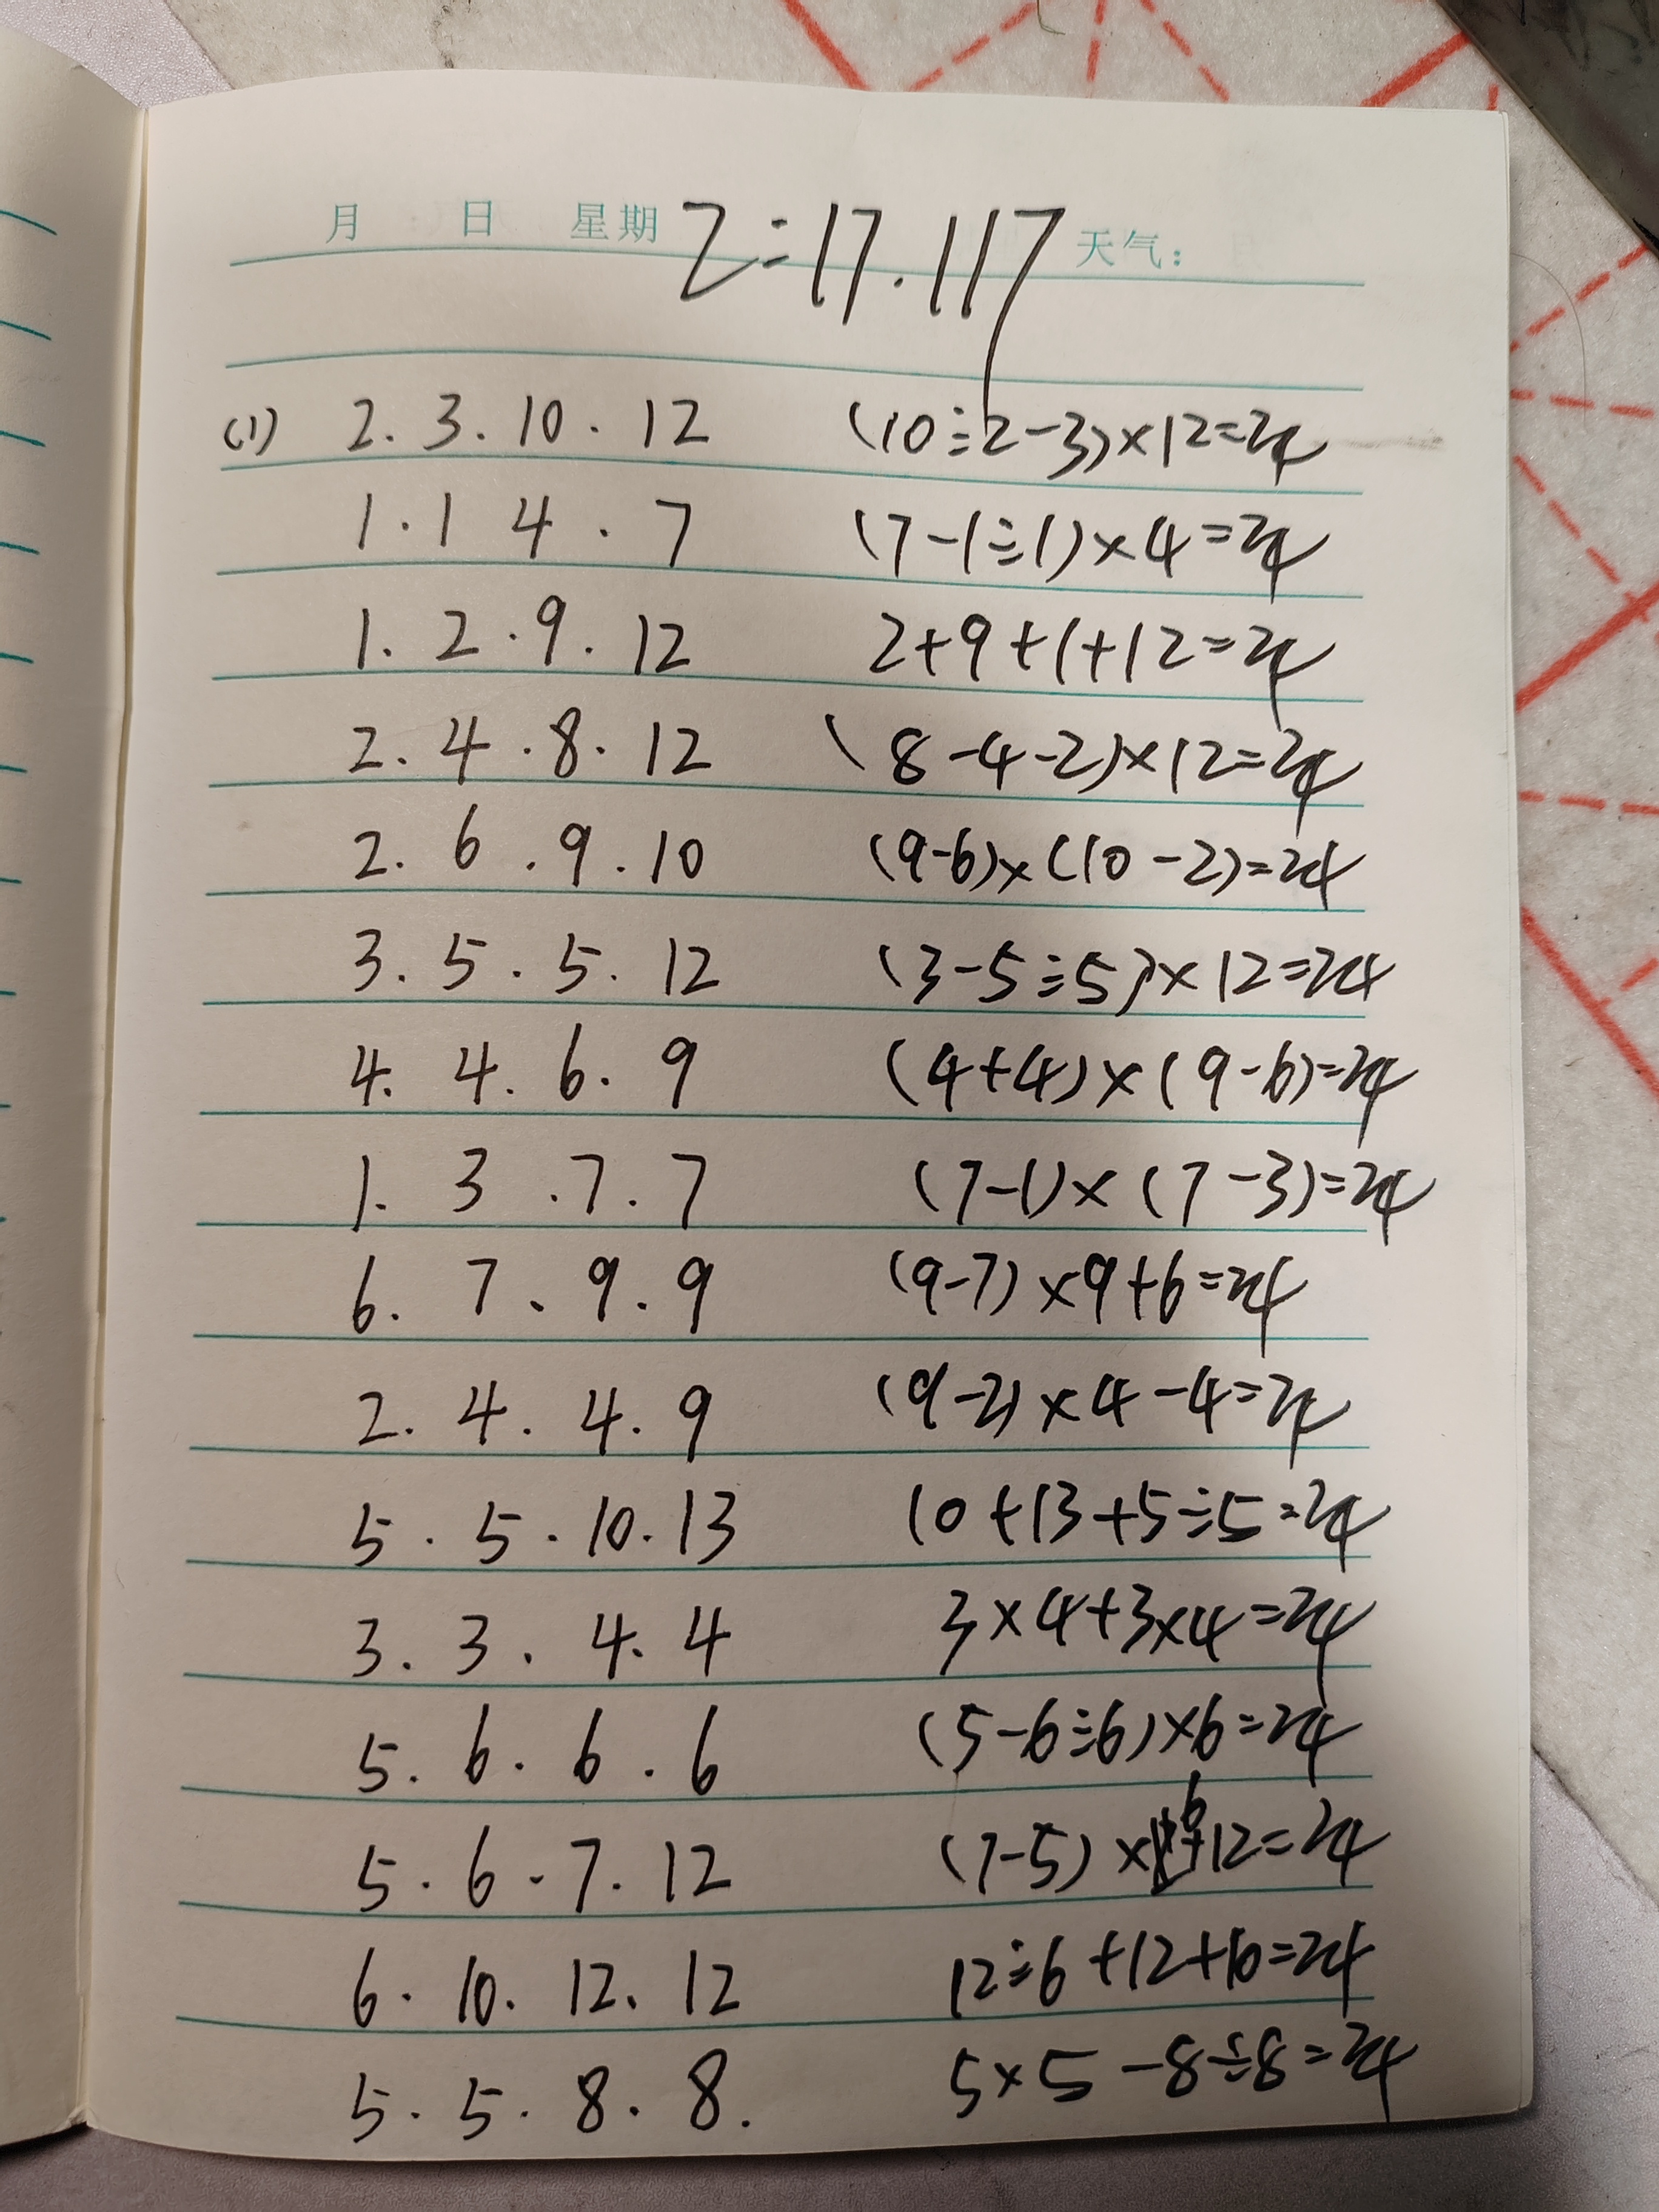 月 日 星期 2:17.117 天气:
(1) 2. 3. 10. 12 (10÷2-3)×12=24
1. 1 4. 7 (7-1÷1)×4=24
1. 2. 9. 12 2+9+1+12=24
2. 4. 8. 12 (8-4-2)×12=24
2. 6. 9. 10 (9-6)×(10-2)=24
3. 5. 5. 12 (3-5÷5)×12=24
4. 4. 6. 9 (4+4)×(9-6)=24
1. 3. 7. 7 (7-1)×(7-3)=24
6. 7. 9. 9 (9-7)×9+6=24
2. 4. 4. 9 (9-2)×4-4=24
5. 5. 10. 13 10+13+5÷5=24
3. 3. 4. 4 3×4+3×4=24
5. 6. 6. 6 (5-6÷6)×6=24
5. 6. 7. 12 (7-5)×6+12=24
6. 10. 12. 12 12÷6+12+10=24
5. 5. 8. 8. 5×5-8÷8=24